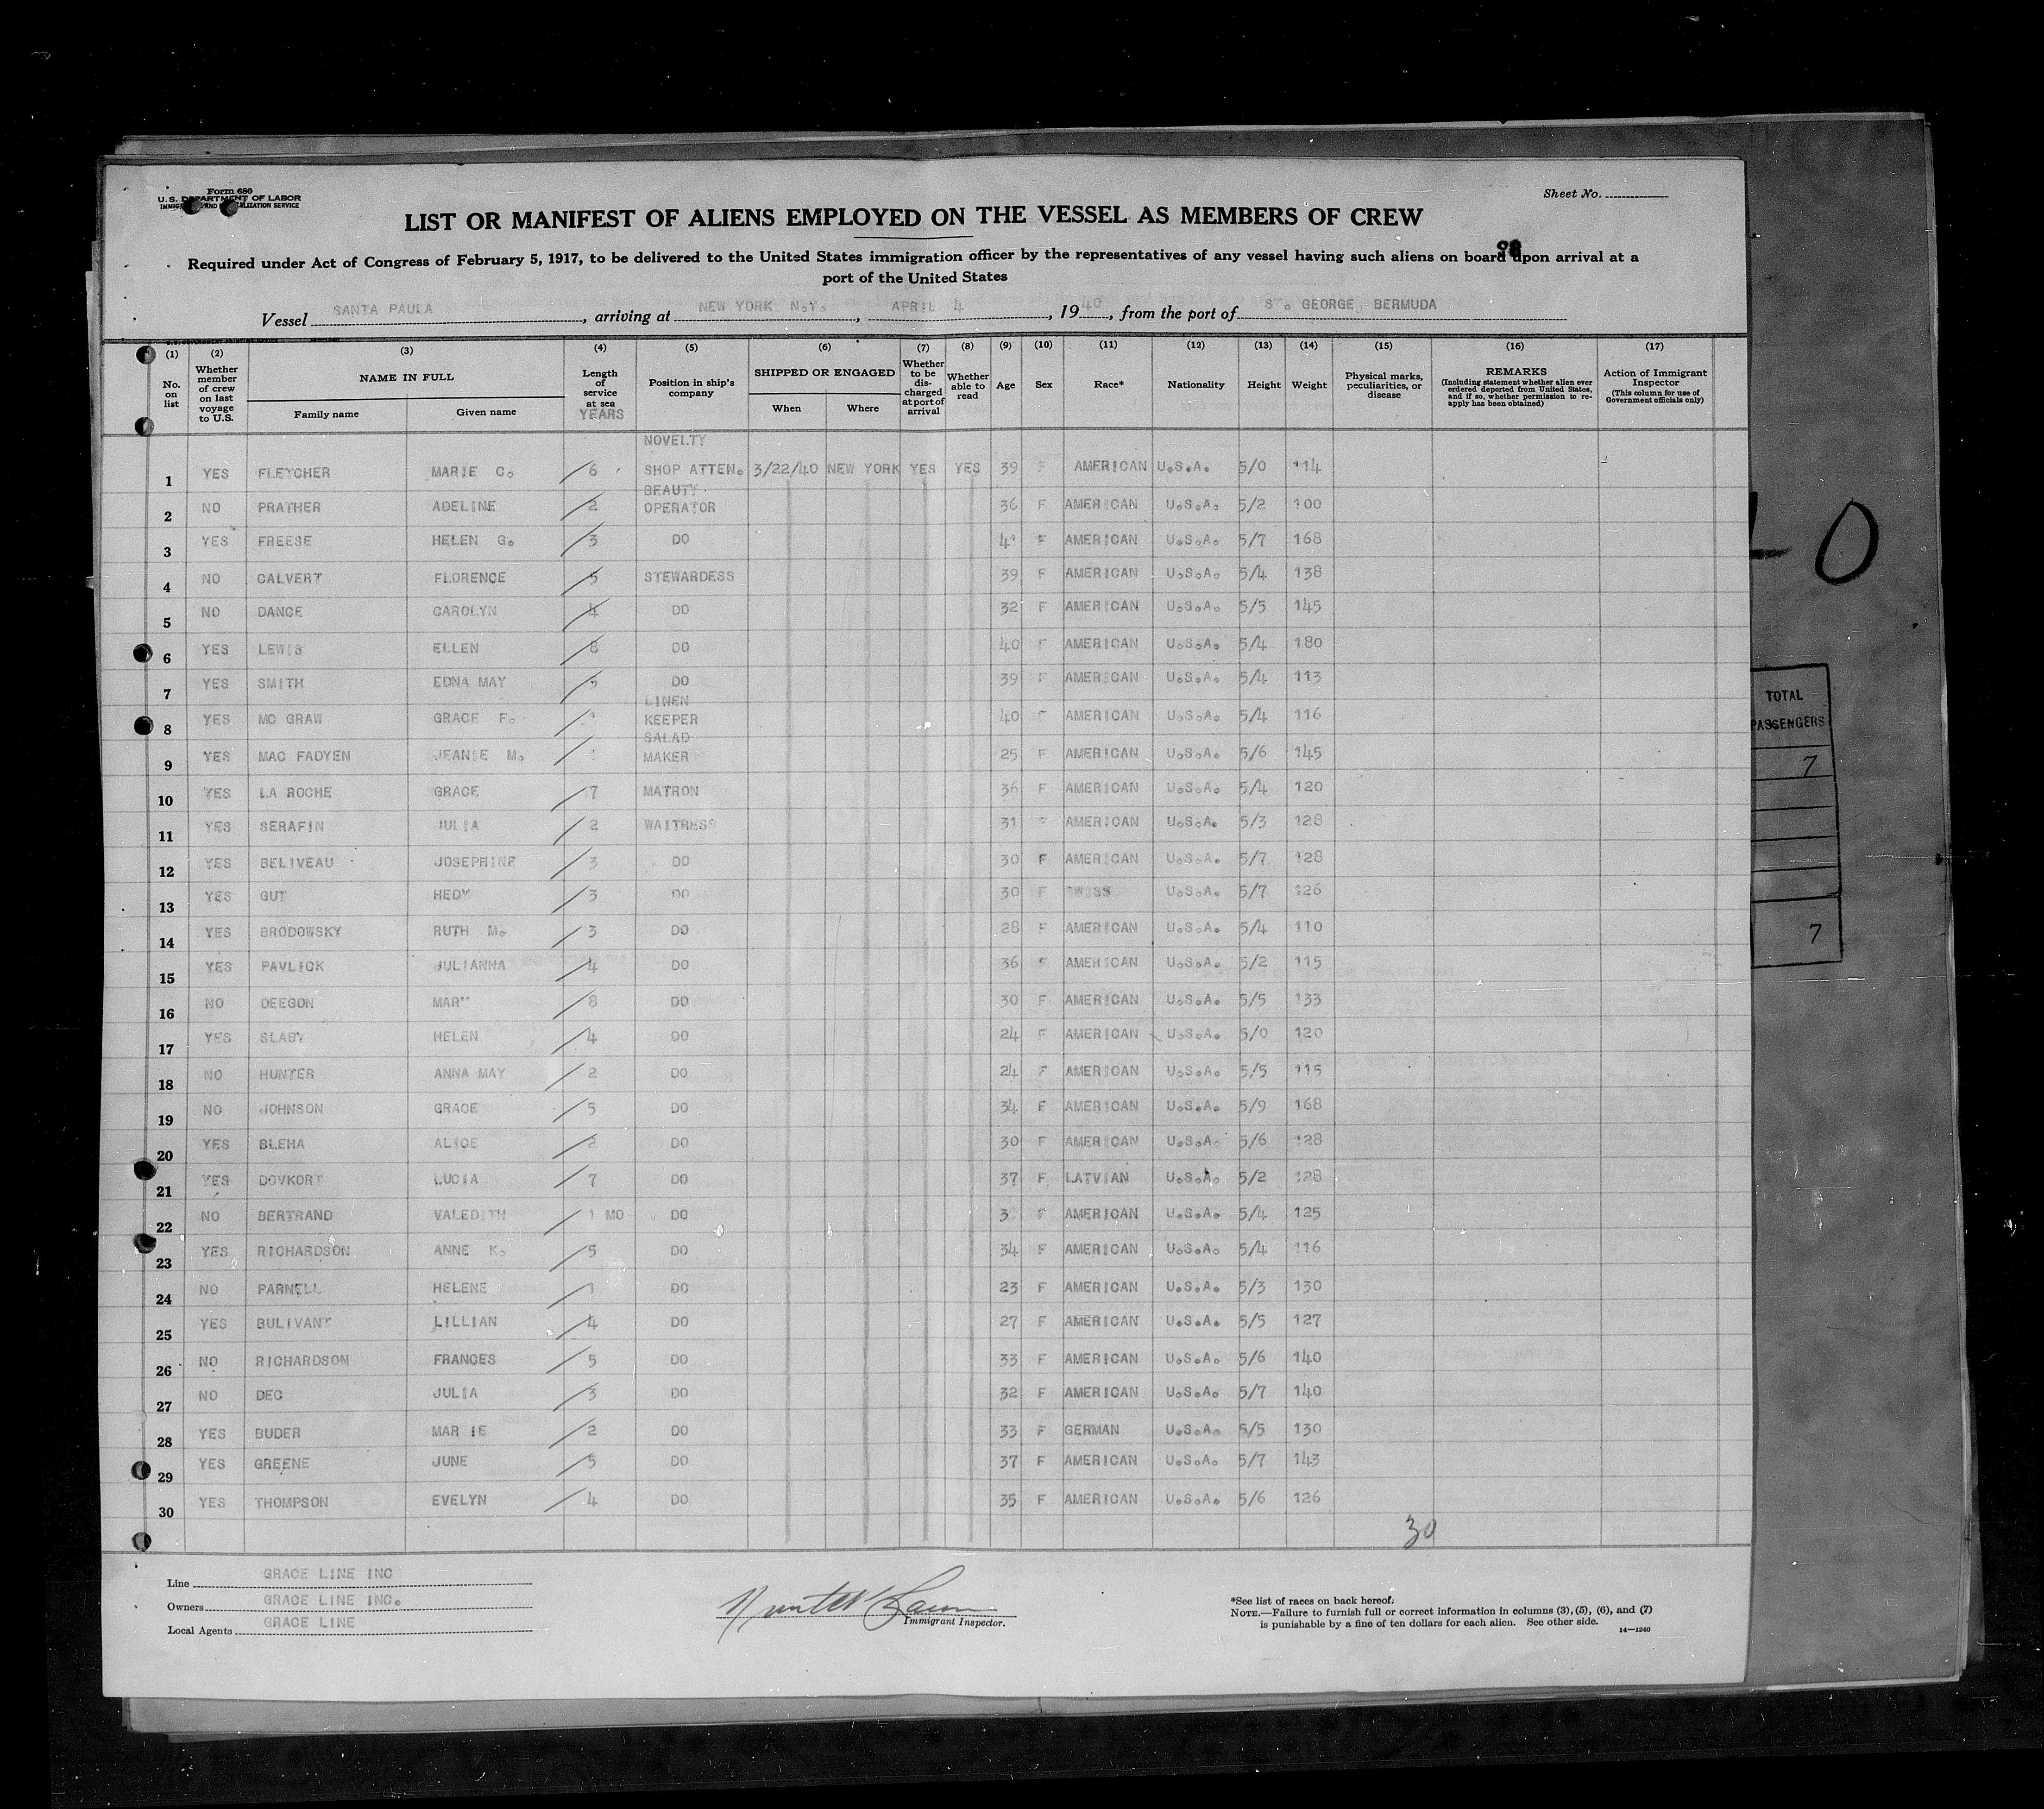 Form 680
U. S. DEPARTMENT OF LABOR
Sheet No.
LIST OR MANIFEST OF ALIENS EMPLOYED ON THE VESSEL AS MEMBERS OF CREW
Required under Act of Congress of February 5, 1917, to be delivered to the United States immigration officer by the representatives of any vessel having such aliens on board upon arrival at a
port of the United States
Vessel SANTA PAULA, arriving at NEW YORK N.Y., APRIL 4, 1940, from the port of ST. GEORGE, BERMUDA
(1) (2) (3) (4) (5) (6) (7) (8) (9) (10) (11) (12) (13) (14) (15) (16) (17)
No. on list
Whether member of crew on last voyage to U.S.
NAME IN FULL
Family name
Given name
Length of service at sea
YEARS
Position in ship's company
SHIPPED OR ENGAGED
When
Where
Whether to be discharged at port of arrival
Whether able to read
Age
Sex
Race*
Nationality
Height
Weight
Physical marks, peculiarities, or disease
REMARKS
(Including statement whether alien ever ordered deported from United States, and if so, whether permission to reapply has been obtained)
Action of Immigrant Inspector
(This column for use of Government officials only)
NOVELTY
1 YES FLETCHER MARIE C. 6 SHOP ATTEN. 3/22/40 NEW YORK YES YES 39 F AMERICAN U.S.A. 5/0 114
BEAUTY
2 NO PRATHER ADELINE 2 OPERATOR 36 F AMERICAN U.S.A. 5/2 100
3 YES FREESE HELEN G. 3 DO 41 F AMERICAN U.S.A. 5/7 168
4 NO CALVERT FLORENCE 5 STEWARDESS 39 F AMERICAN U.S.A. 5/4 138
5 NO DANCE CAROLYN 4 DO 32 F AMERICAN U.S.A. 5/5 145
6 YES LEWIS ELLEN 8 DO 40 F AMERICAN U.S.A. 5/4 180
7 YES SMITH EDNA MAY 5 DO 39 F AMERICAN U.S.A. 5/4 113
LINEN
8 YES MC GRAW GRACE F. KEEPER 40 F AMERICAN U.S.A. 5/4 116
SALAD
9 YES MAC FADYEN JEANIE M. MAKER 25 F AMERICAN U.S.A. 5/6 145
10 YES LA ROCHE GRACE 7 MATRON 36 F AMERICAN U.S.A. 5/4 120
11 YES SERAFIN JULIA 2 WAITRESS 31 F AMERICAN U.S.A. 5/3 128
12 YES BELIVEAU JOSEPHINE 3 DO 30 F AMERICAN U.S.A. 5/7 128
13 YES GUT HEDY 3 DO 30 F SWISS U.S.A. 5/7 126
14 YES BRODOWSKY RUTH M. 3 DO 28 F AMERICAN U.S.A. 5/4 110
15 YES PAVLICK JULIANNA 4 DO 36 F AMERICAN U.S.A. 5/2 115
16 NO DEEGON MARY 8 DO 30 F AMERICAN U.S.A. 5/5 133
17 YES SLABY HELEN 4 DO 24 F AMERICAN U.S.A. 5/0 120
18 NO HUNTER ANNA MAY 2 DO 24 F AMERICAN U.S.A. 5/5 115
19 NO JOHNSON GRACE 5 DO 34 F AMERICAN U.S.A. 5/9 168
20 YES BLEHA ALICE 2 DO 30 F AMERICAN U.S.A. 5/6 128
21 YES DOVKORT LUCIA 7 DO 37 F LATVIAN U.S.A. 5/2 128
22 NO BERTRAND VALEDITH 1 MO DO F AMERICAN U.S.A. 5/4 125
23 YES RICHARDSON ANNE K. 5 DO 34 F AMERICAN U.S.A. 5/4 116
24 NO PARNELL HELENE 1 DO 23 F AMERICAN U.S.A. 5/3 130
25 YES BULIVANT LILLIAN 4 DO 27 F AMERICAN U.S.A. 5/5 127
26 NO RICHARDSON FRANCES 5 DO 33 F AMERICAN U.S.A. 5/6 140
27 NO DEC JULIA 3 DO 32 F AMERICAN U.S.A. 5/7 140
28 YES BUDER MARIE 2 DO 33 F GERMAN U.S.A. 5/5 130
29 YES GREENE JUNE 5 DO 37 F AMERICAN U.S.A. 5/7 143
30 YES THOMPSON EVELYN 4 DO 35 F AMERICAN U.S.A. 5/6 126
30
Line GRACE LINE INC
Owners GRACE LINE INC.
Local Agents GRACE LINE
Immigrant Inspector.
*See list of races on back hereof.
NOTE.—Failure to furnish full or correct information in columns (3), (5), (6), and (7)
is punishable by a fine of ten dollars for each alien. See other side.
14—1240
0
TOTAL
PASSENGERS
7
7